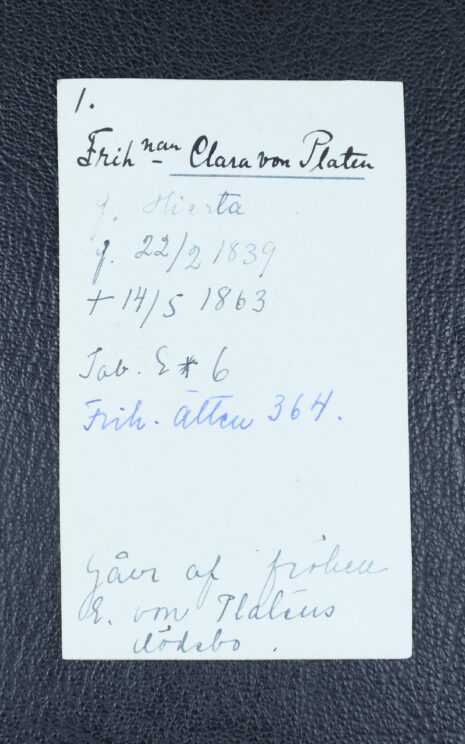 1.
Frih nan Clara von Platen
f. Hierta
f. 22/2 1839
+ 14/5 1863
Tab. E * 6
Frih. ätten 364.
Gåva af fröken
E. von Platens
dödsbo.